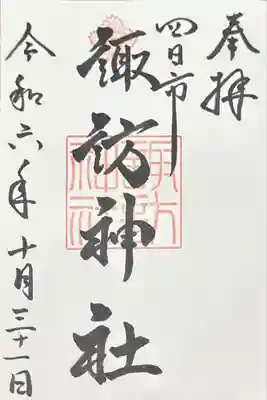 奉拝
四日市
諏訪神社
令和六年十月三十一日